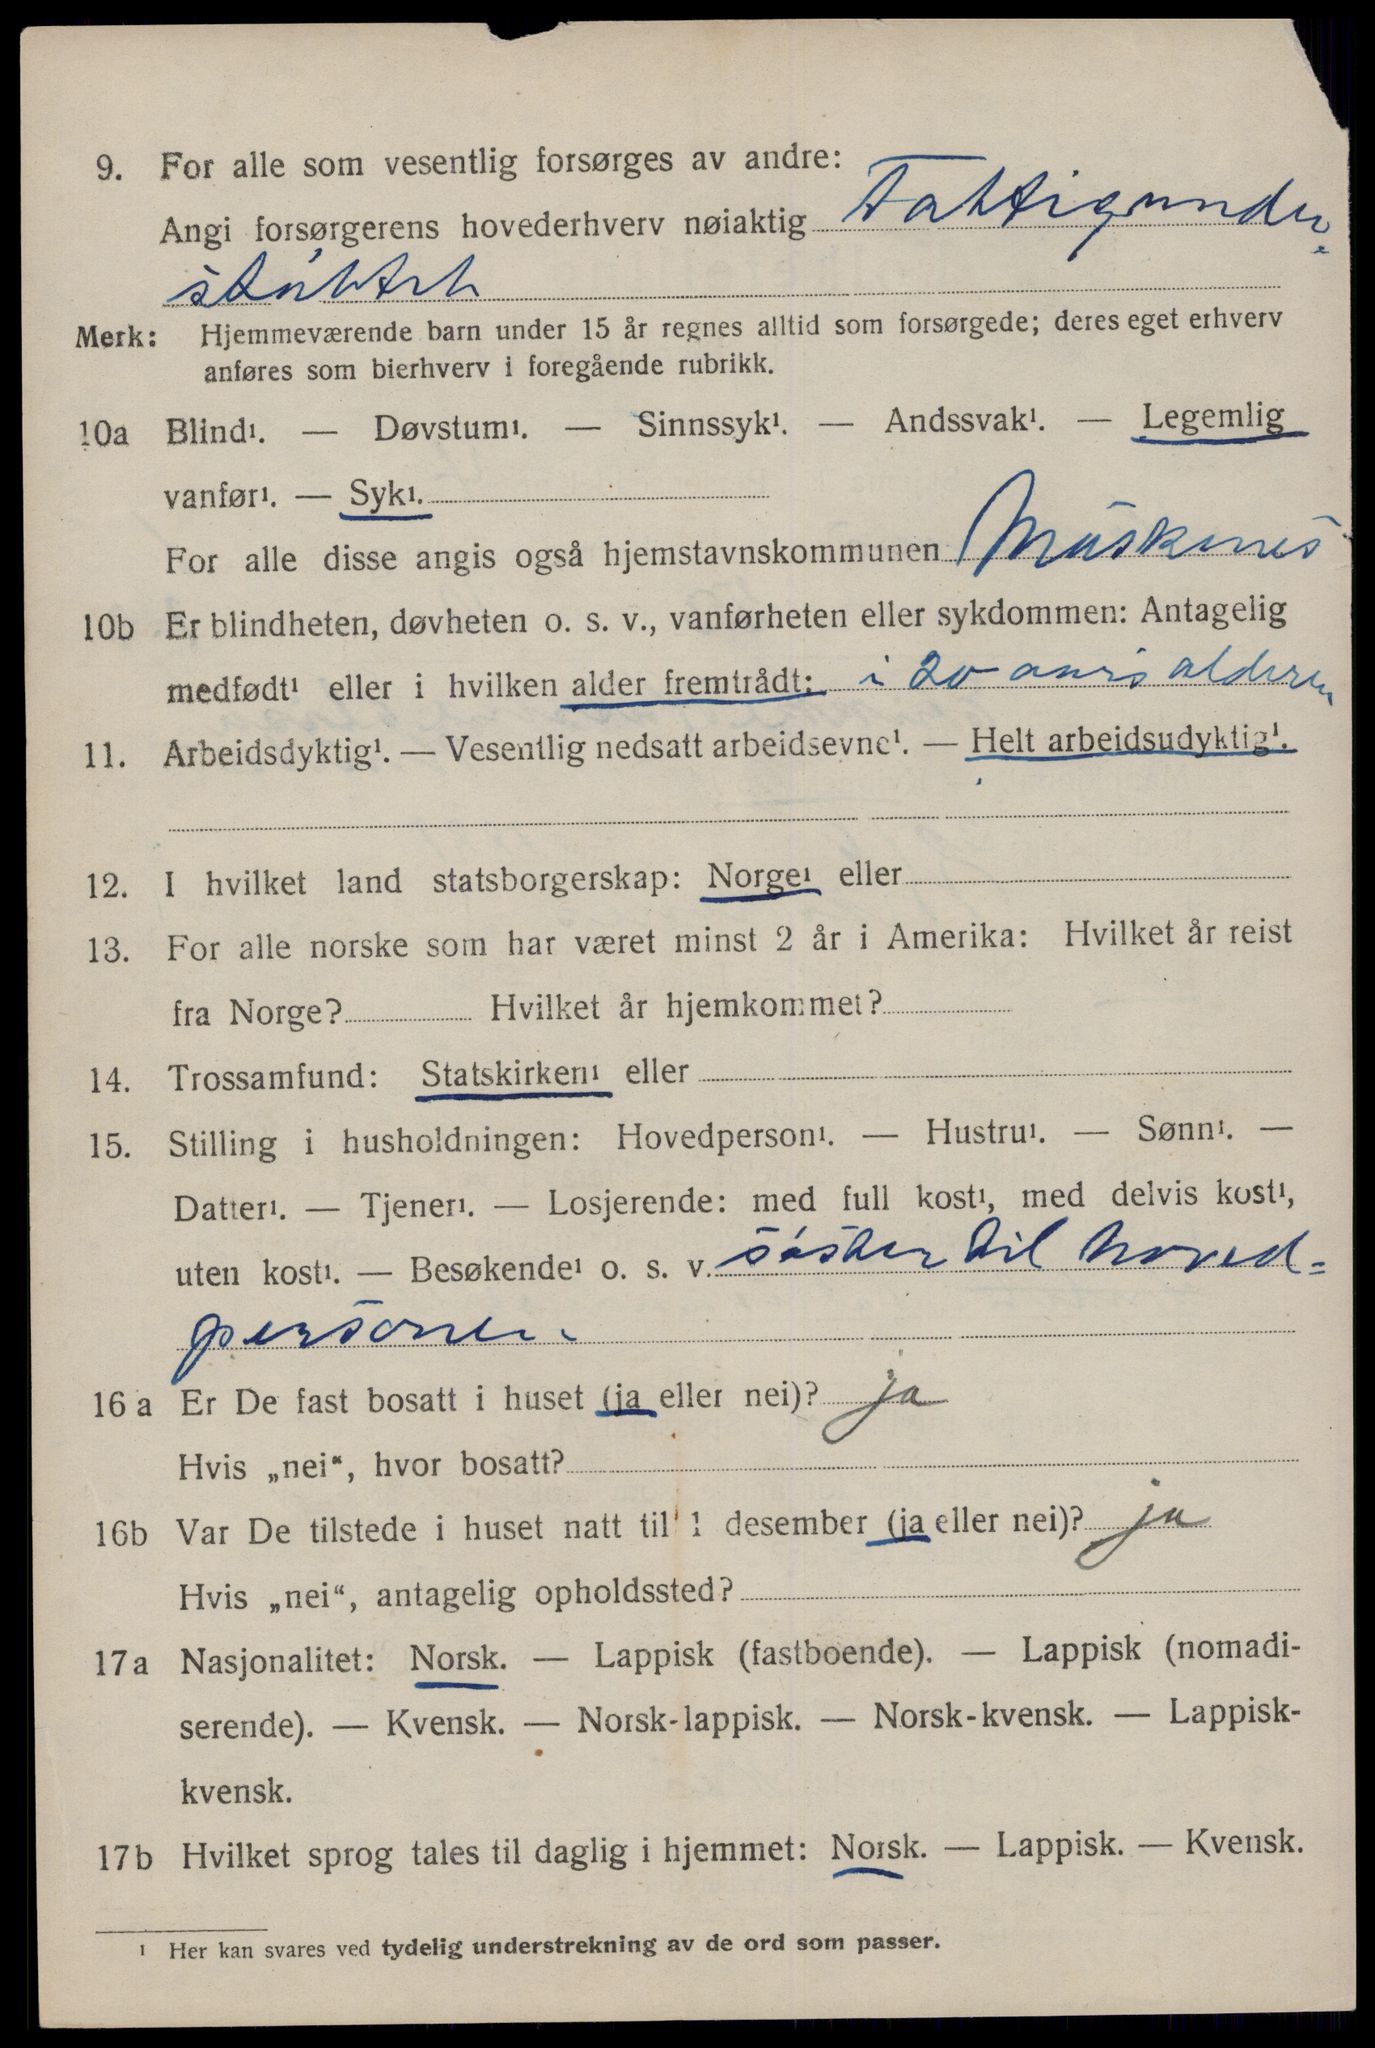 9. For alle som vesentlig forsørges av andre:
Angi forsørgerens hovederhverv nøiaktig Fattigunder-
støttet
Merk: Hjemmeværende barn under 15 år regnes alltid som forsørgede; deres eget erhverv
anføres som bierhverv i foregående rubrikk.
10a Blind¹. — Døvstum¹. — Sinnssyk¹. — Andssvak¹. — Legemlig
vanfør¹. — Syk¹.
For alle disse angis også hjemstavnskommunen Moskenes
10b Er blindheten, døvheten o. s. v., vanførheten eller sykdommen: Antagelig
medfødt¹ eller i hvilken alder fremtrådt: i 20 aars alderen
11. Arbeidsdyktig¹. — Vesentlig nedsatt arbeidsevne¹. — Helt arbeidsudyktig¹.
12. I hvilket land statsborgerskap: Norge¹ eller
13. For alle norske som har været minst 2 år i Amerika: Hvilket år reist
fra Norge? Hvilket år hjemkommet?
14. Trossamfund: Statskirken¹ eller
15. Stilling i husholdningen: Hovedperson¹. — Hustru¹. — Sønn¹. —
Datter¹. — Tjener¹. — Losjerende: med full kost¹, med delvis kost¹,
uten kost¹. — Besøkende¹ o. s. v. søster til hoved=
personen.
16 a Er De fast bosatt i huset (ja eller nei)? ja
Hvis „nei“, hvor bosatt?
16b Var De tilstede i huset natt til 1 desember (ja eller nei)? ja
Hvis „nei“, antagelig opholdssted?
17a Nasjonalitet: Norsk. — Lappisk (fastboende). — Lappisk (nomadi-
serende). — Kvensk. — Norsk-lappisk. — Norsk-kvensk. — Lappisk-
kvensk.
17b Hvilket sprog tales til daglig i hjemmet: Norsk. — Lappisk. — Kvensk.
¹ Her kan svares ved tydelig understrekning av de ord som passer.